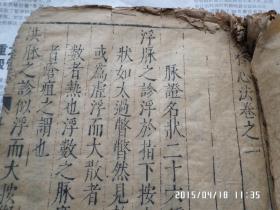 心法卷之一
脉證名狀二十六
浮脉之診浮於指下按
狀如太過瞥瞥然見
或為虛浮而大散者
數者熱也浮數之脉
者瘡疽之謂也
洪脉之診似浮而大按
2015/04/18 11:35